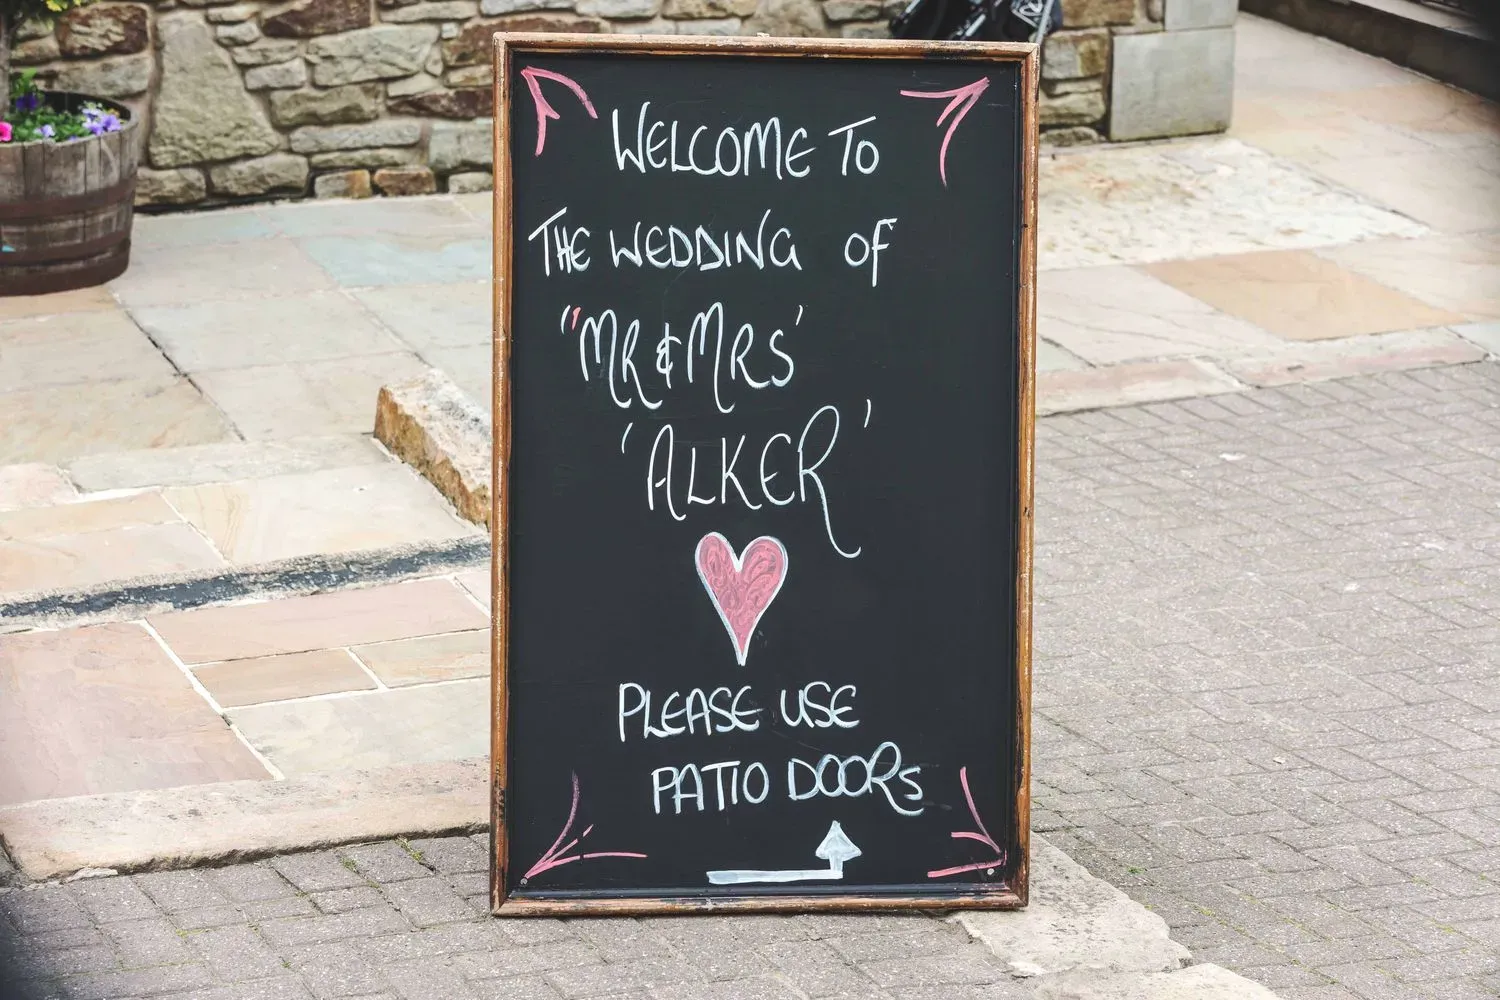 WELCOME TO
THE WEDDING OF
"MR & MRS'
'ALKER'
PLEASE USE
PATIO DOORS